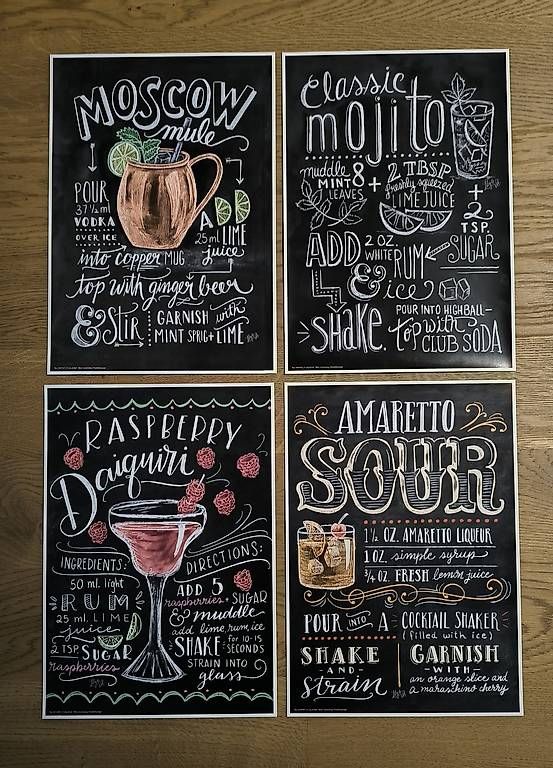 MOSCOW
mule
POUR
37 ½ ml
VODKA
OVER ICE
A
25 ml LIME
juice
into copper MUG
top with ginger beer
& Stir
GARNISH with
MINT SPRIG + LIME
Classic
mojito
muddle 8
MINT
LEAVES
+ 2 TBSP
freshly squeezed
LIME JUICE
+
2
TSP.
SUGAR
ADD 2 OZ.
WHITE RUM
& ice
Shake.
POUR INTO HIGHBALL-
top with
CLUB SODA
RASPBERRY
Daiquiri
INGREDIENTS:
50 ml. light
RUM
25 ml. LIME
juice
2 TSP SUGAR
raspberries
DIRECTIONS:
ADD 5
raspberries + SUGAR
& muddle
add lime, rum, ice
SHAKE for 10-15
SECONDS
STRAIN INTO
glass
AMARETTO
SOUR
1½ OZ. AMARETTO LIQUEUR
1 OZ. simple syrup
¾ OZ. FRESH lemon juice
POUR INTO A COCKTAIL SHAKER
(filled with ice)
SHAKE
-AND-
Strain
GARNISH
-WITH-
an orange slice and
a maraschino cherry